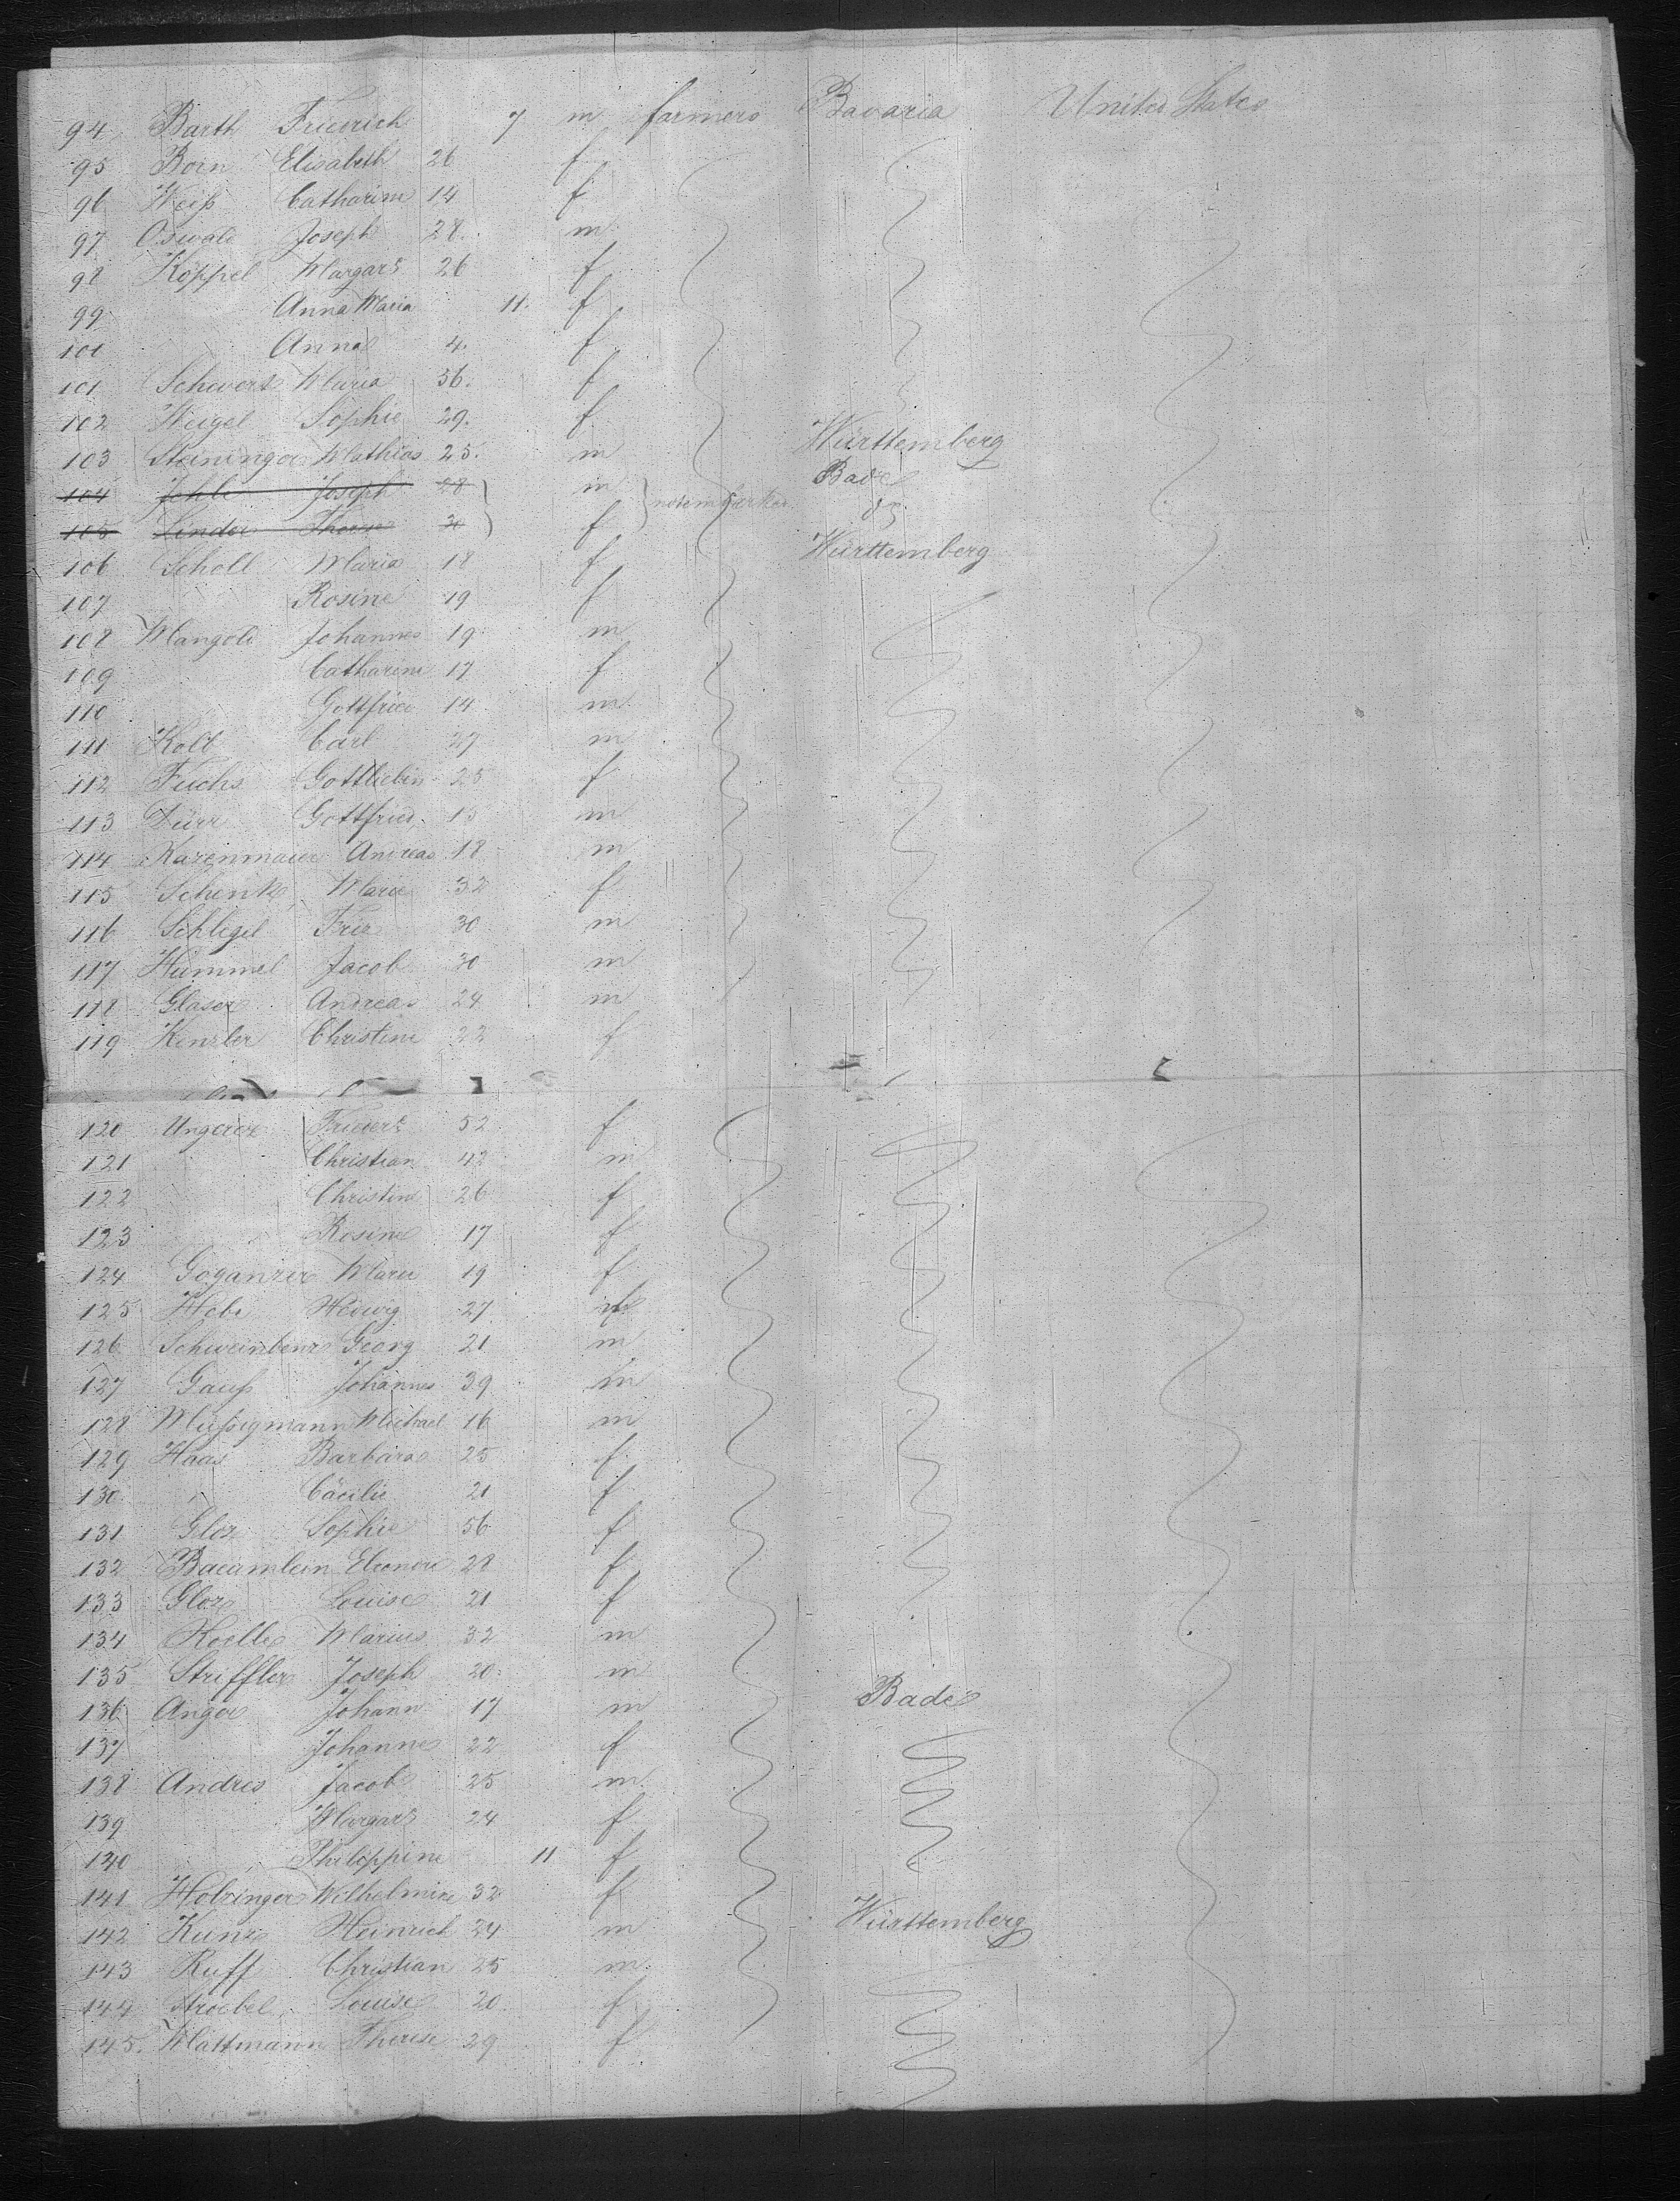 94 Barth Friedrich 7 m farmers Bavaria United States
95 Born Elisabeth 26 f
96 Weiß Catharine 14 f
97 Oswald Joseph 28. m
98 Köppel Margart 26 f
99 Anna Maria 11. f
101 Anna 4. f
101 Schwert Maria 56. f
102 Weigel Sophie 29. f
103 Steininger Mathias 25. m Württemberg
104 Jehle Joseph 28 m Bade
105 Linder Therese 30 f not embarked do
106 Scholl Maria 18 f Württemberg
107 Rosine 19 f
108 Mangold Johannes 19 m
109 Catharine 17 f
110 Gottfried 14 m
111 Kolb Carl 27 m
112 Fuchs Gottliebin 25 f
113 Dürr Gottfried 15 m
114 Kazenmaier Andreas 18 m
115 Schenk Marie 32 f
116 Schlegel Friz 30 m
117 Hummel Jacob 30 m
118 Glaser Andreas 24 m
119 Kenzler Christine 22 f
120 Ungerer Friedert 52 f
121 Christian 42 m
122 Christine 26 f
123 Rosine 17 f
124 Goganzer Marie 19 f
125 Hebe Hedwig 27
126 Schweinbenz Georg 21 m
127 Gauß Johannes 39 m
128 Mußigmann Michael 16 m
129 Haas Barbara 25 f
130 " Cäcilie 21 f
131 Gloz Sophie 56 f
132 Baeumlein Eleonore 28 f
133 Gloz Louise 21 f
134 Koelle Marius 32 m
135 Striffler Joseph 20. m
136 Anger Johann 17 m Bade
137 Johanne 22 f
138 Andres Jacob 25 m
139 Margart 24 f
140 Philippine 11 f
141 Holzinger Wilhelmine 32 f
142 Kunz Heinrich 24 m Württemberg
143 Ruff Christian 25 m
144 Stroebel Louise 20 f
145. Mattmann Therese 29 f